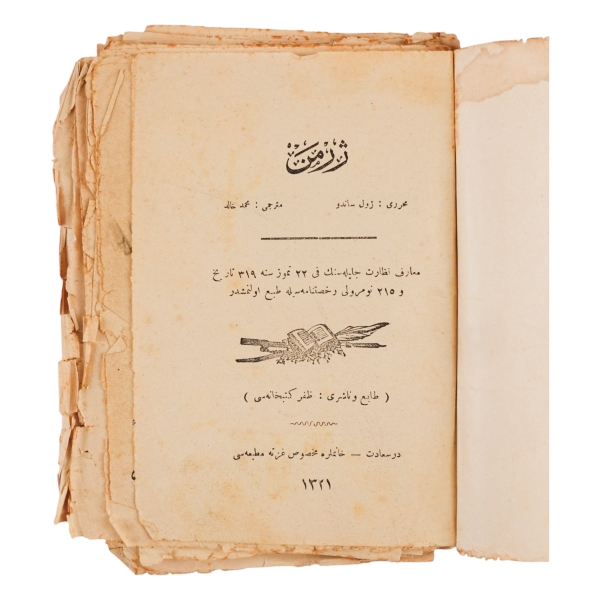 ژرمن
محرری : ژول ساندو مترجمی : محمد خاله
معارف نظارت جلیله‌سنك فی ٢٢ تموز سنه ٣١٩ تاریخ
و ٢١٥ نومرولی رخصتنامه‌سیله طبع اولنمشدر
( طابع و ناشری : ظفر كتبخانه‌سی )
درسعادت — خانملره مخصوص غزته مطبعه‌سی
١٣٢١